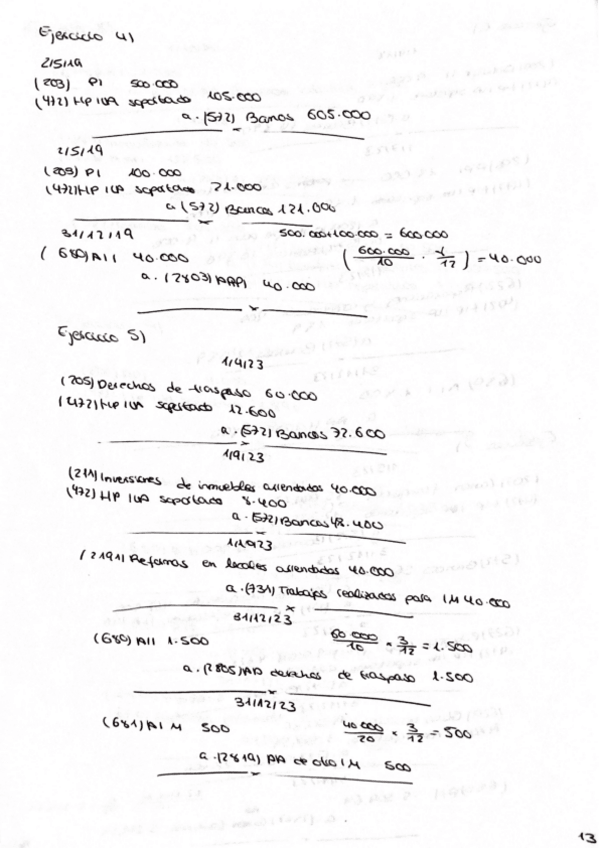 Ejercicio 4)
2/5/19
(203) PI 500.000
(472) HP IVA soportado 105.000
a. (572) Bancos 605.000
2/5/19
(203) PI 100.000
(472) HP IVA soportado 21.000
a (572) Bancos 121.000
31/12/19 500.000+100.000 = 600.000
(680) AII 40.000 (600.000/10 · 8/12) = 40.000
a. (2803) AAPI 40.000
Ejercicio 5)
1/4/23
(205) Derechos de traspaso 60.000
(472) HP IVA soportado 12.600
a. (572) Bancos 72.600
1/9/23
(211) Inversiones de inmuebles arrendados 40.000
(472) HP IVA soportado 8.400
a. (572) Bancos 48.400
1/10/23
(2191) Reformas en locales arrendados 40.000
a. (731) Trabajos realizados para IM 40.000
31/12/23
(680) AII 1.500 60.000/10 × 3/12 = 1.500
a. (2805) AA derechos de traspaso 1.500
31/12/23
(681) AIM 500 40.000/20 × 3/12 = 500
a. (2819) AA de otro IM 500
13